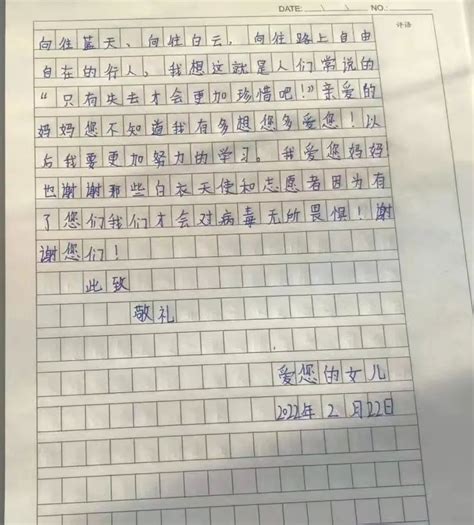 DATE: / / NO.:
评语
向往蓝天、向往白云，向往路上自由
自在的行人，我想这就是人们常说的
“只有失去才会更加珍惜吧!”亲爱的
妈妈您不知道我有多想您多爱您!以
后我要更加努力的学习。我爱您妈妈
也谢谢那些白衣天使和志愿者因为有
了您们我们才会对病毒无所畏惧!谢
谢您们!
此致
敬礼
爱您的女儿
2022年2月22日